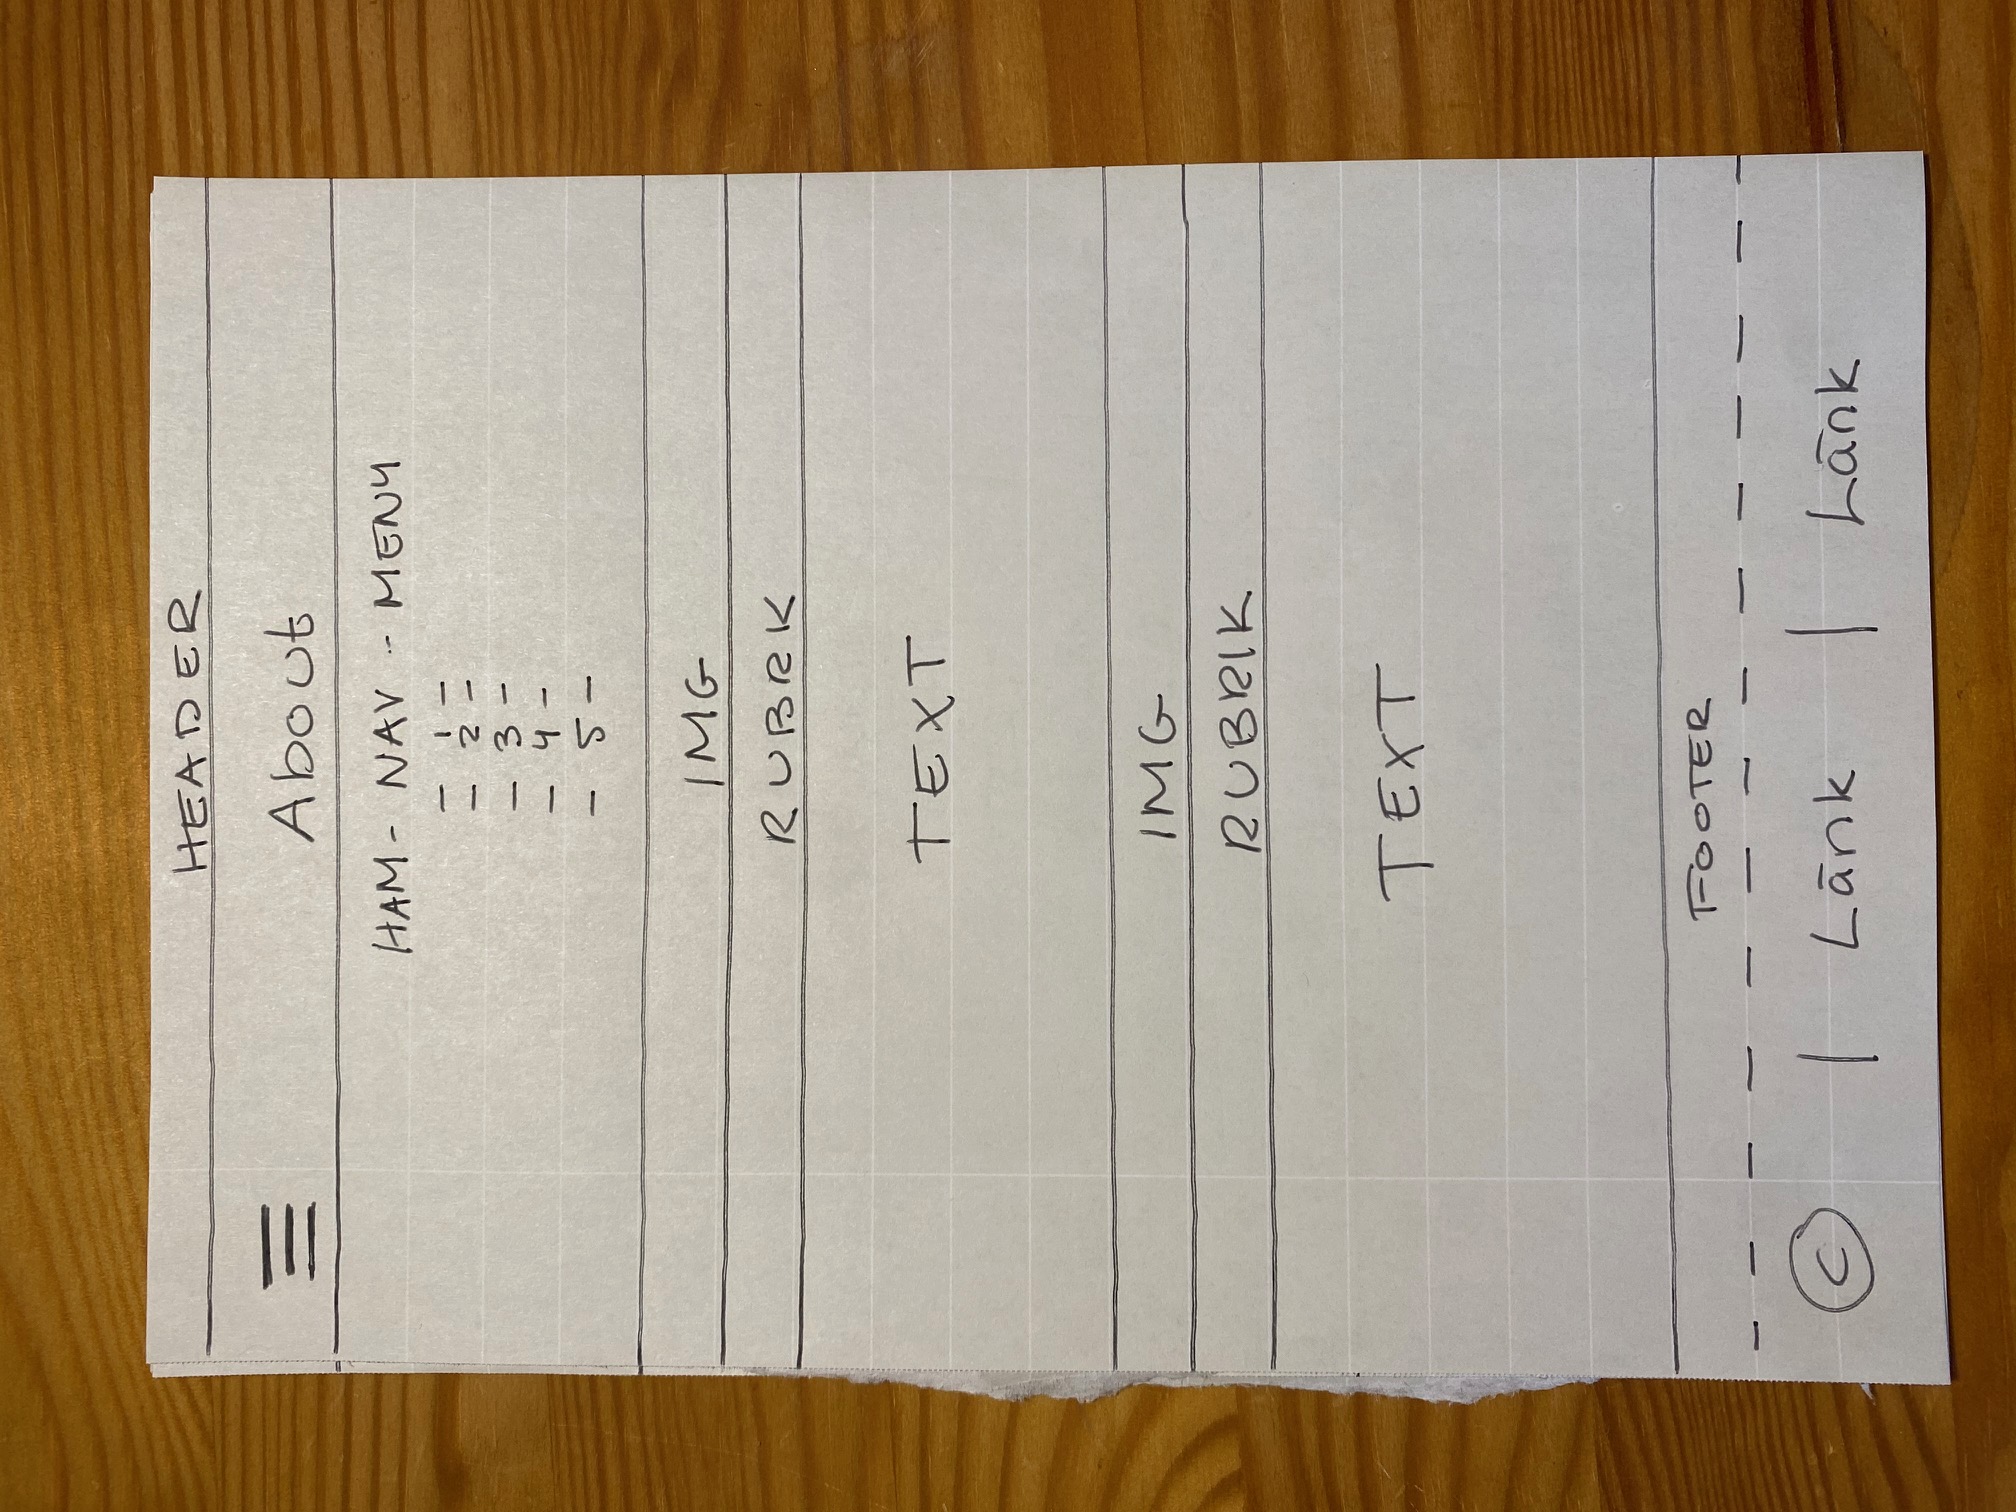 HEADER
About
HAM - NAV - MENY
- 1 -
- 2 -
- 3 -
- 4 -
- 5 -
IMG
RUBRK
TEXT
IMG
RUBRIK
TEXT
FOOTER
© | Länk | Länk